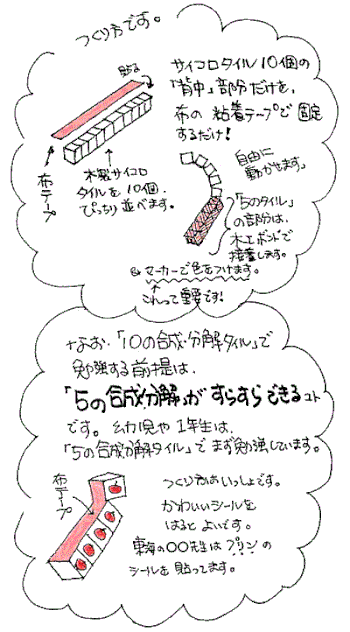 つくり方です。
サイコロタイル10個の
「背中」部分だけを、
布の粘着テープで固定
するだけ!
貼る
布テープ
木製サイコロ
タイルを10個、
ぴっちり並べます。
自由に
動かせます。
「5のタイル」
の部分は、
木工ボンドで
接着します。
マーカーで色をつけます。
これって重要です!
なお、「10の合成・分解タイル」で
勉強する前提は、
「5の合成分解」がすらすらできるコト
です。それ児や1年生は、
「5の合成分解タイル」でまず勉強しています。
布テープ
つくり方はいっしょです。
かわいいシールを
はるとよいです。
東海の〇〇先生はプリンの
シールを貼ってます。